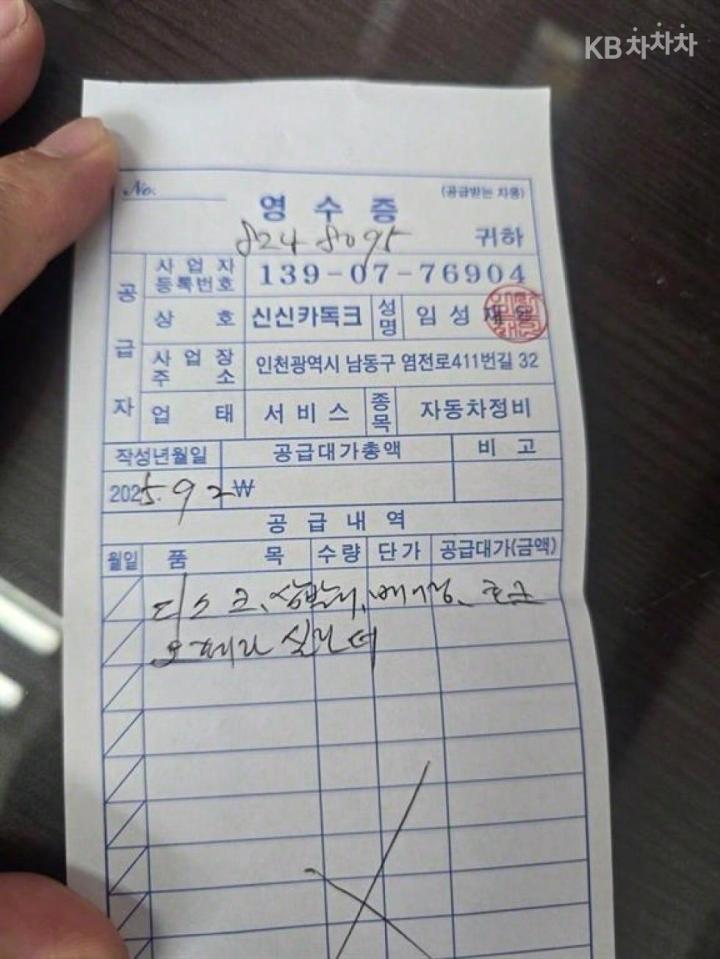 KB차차차
No.
(공급받는 자용)
영수증
824 8095 귀하
공급자
사업자등록번호 139-07-76904
상호 신신카독크 성명 임성재
사업장주소 인천광역시 남동구 염전로411번길 32
업태 서비스 종목 자동차정비
작성년월일 공급대가총액 비고
2025. 9 2 ₩
공급내역
월일 품목 수량 단가 공급대가(금액)
디스크, 삼발이, 베어링,
오페라 실린더